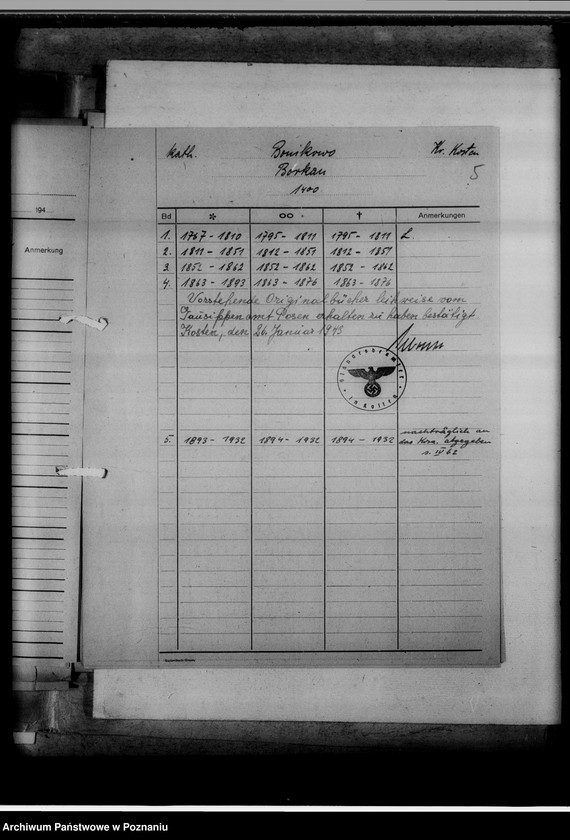 kath. Bonikowo Kr. Kosten
Borkau 5
1400
194
Anmerkung
Bd * oo † Anmerkungen
1. 1767 - 1810 1795 - 1811 1795 - 1811 L.
2. 1811 - 1851 1812 - 1851 1812 - 1851
3. 1852 - 1862 1852 - 1862 1852 - 1862
4. 1863 - 1893 1863 - 1876 1863 - 1876
Vorstehende Originalbücher leihweise vom
Gausippenamt Posen erhalten zu haben bestätigt.
Kosten, den 26. Januar 1943
in Kosten
5. 1893 - 1932 1894 - 1932 1894 - 1932 nachträglich an
das abgegeben
Archiwum Państwowe w Poznaniu